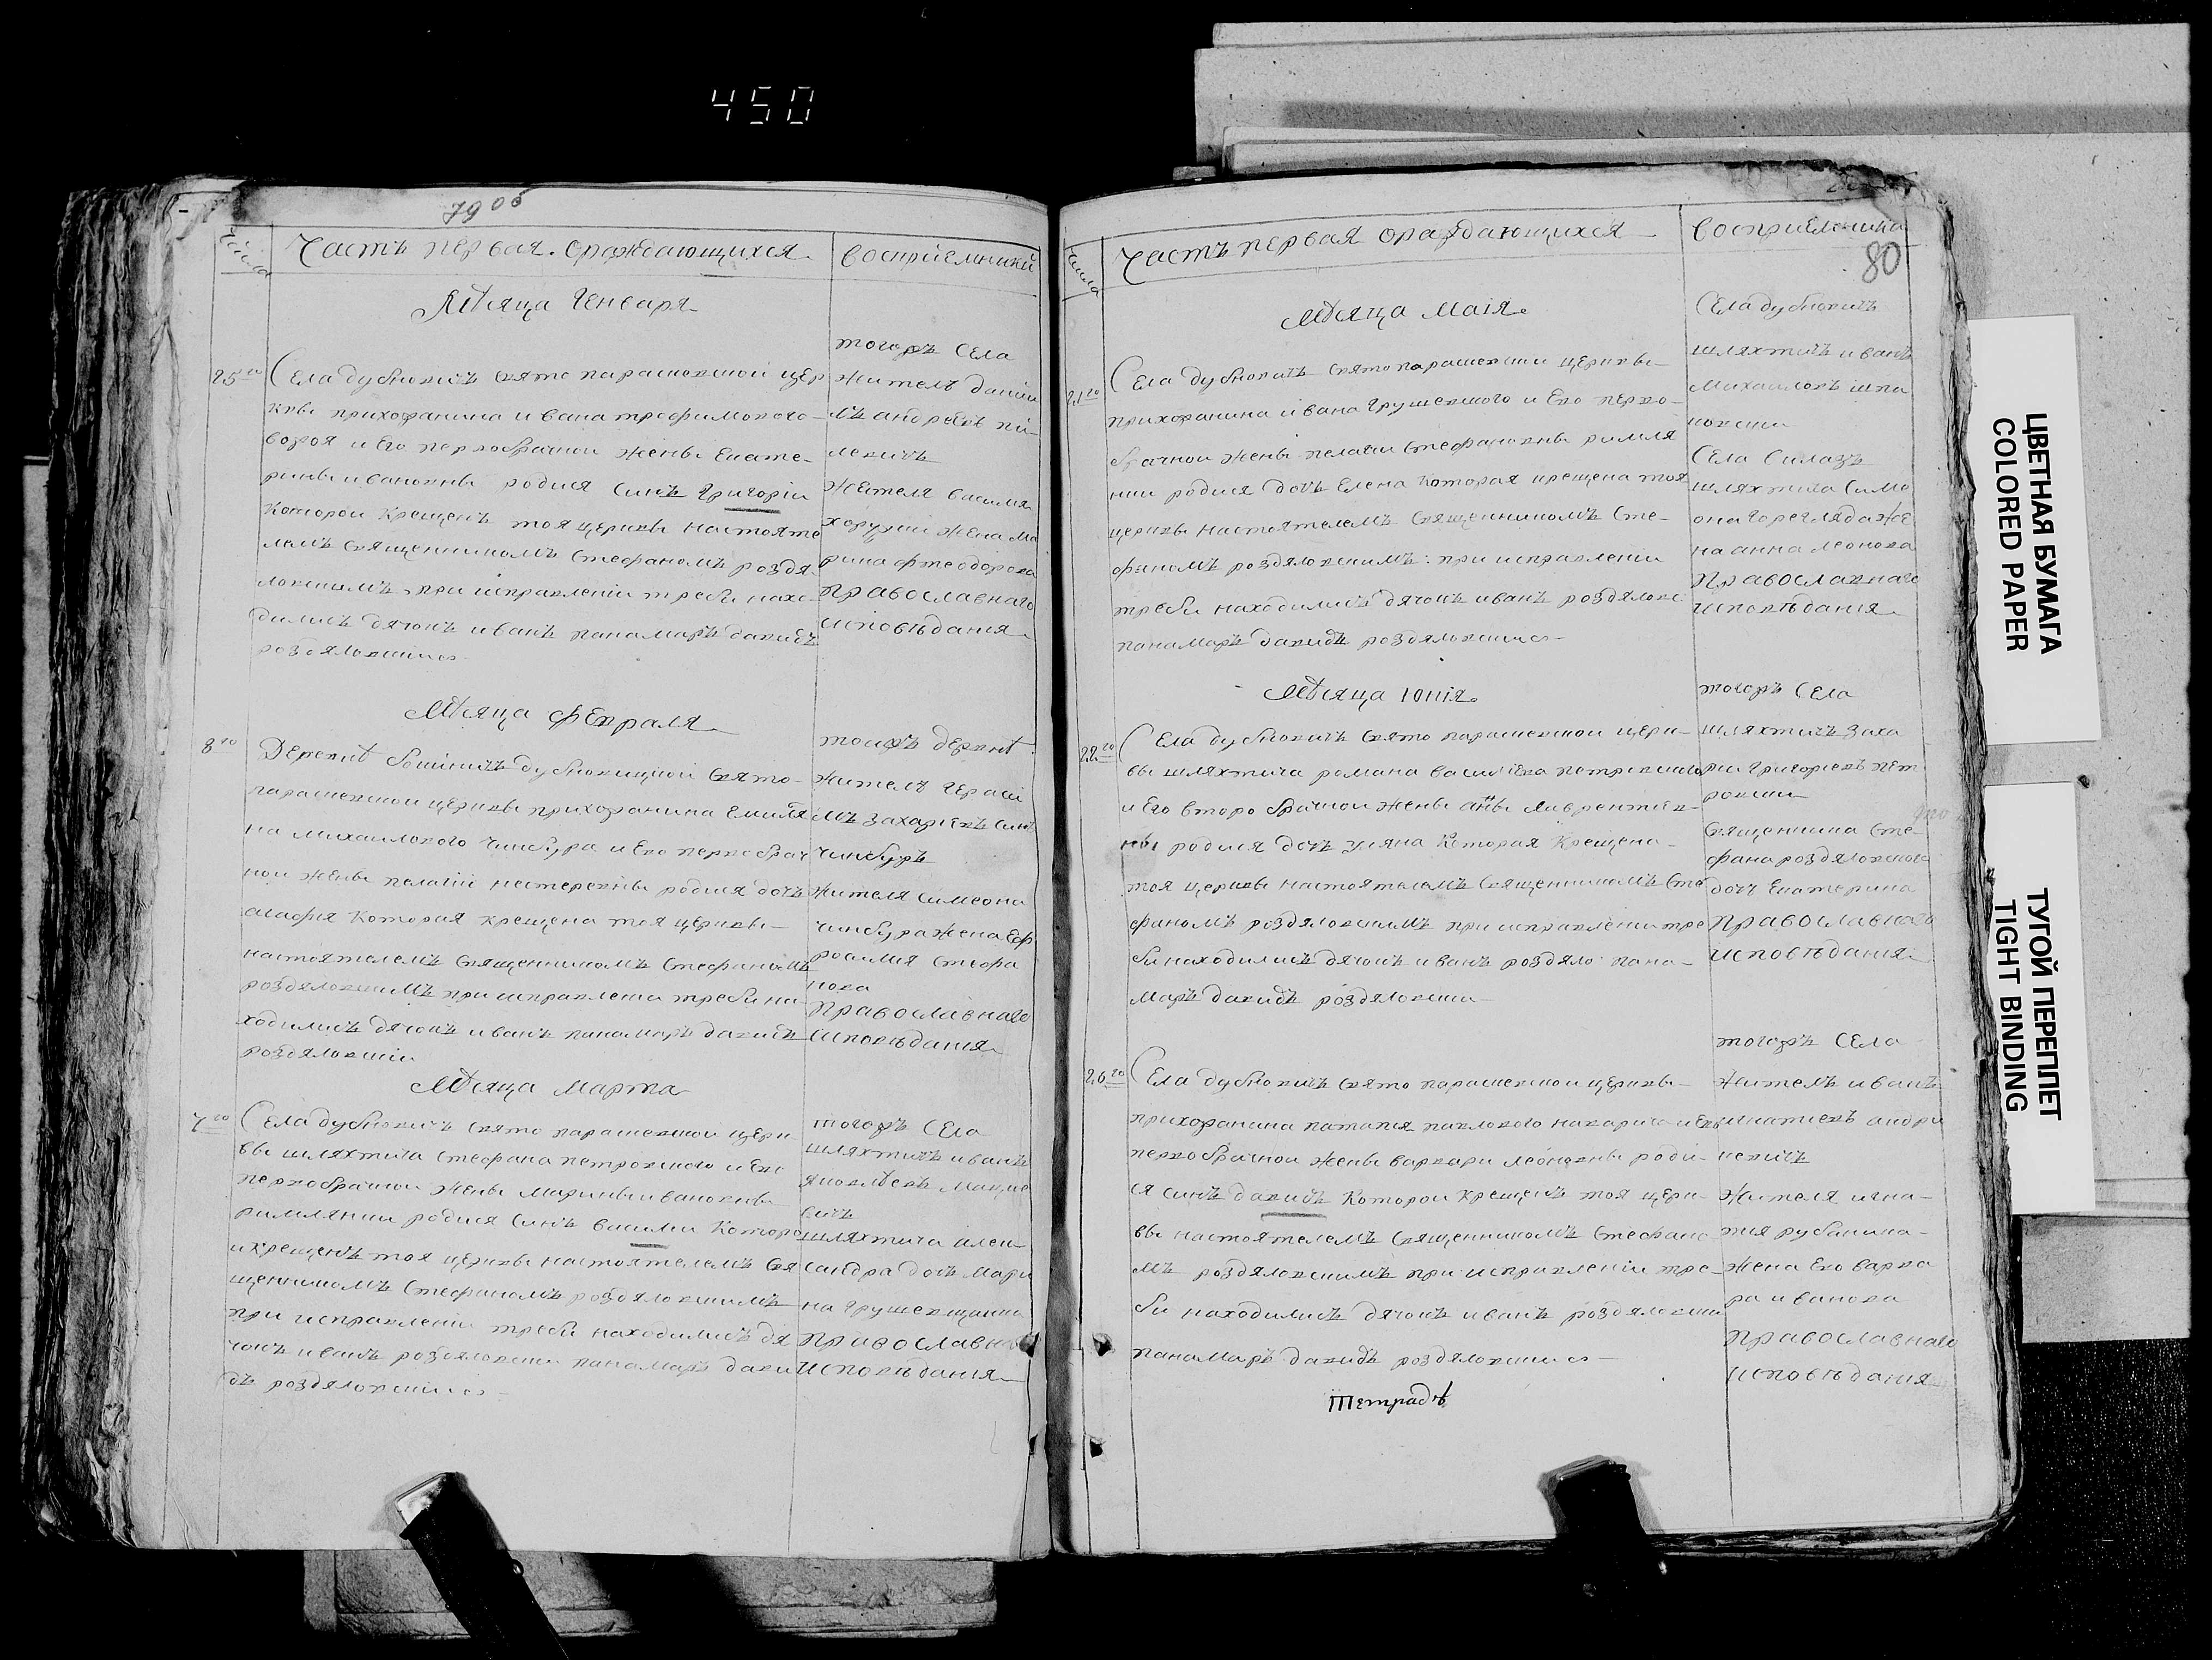 450
79 об
числа
Часть первая. ораждающихся
восприемники
Мѣсяца Генваря
25го
Села дубнович свято парашевской цер
квы прихожанина ивана трофимового
и его первобрачной жены екате-
рины ивановны родися синъ Григорій
которой крещенъ тоя церквы настояте
лемъ священникомъ стефаномъ роздя
ловскимъ, при исправленіи требы нахо-
дились дячокъ иванъ панамарь давидъ
роздяловские
тогожъ Села
житель даніи
лъ андреевъ
жителя василия
жена ма
рина фтеодорова
Православнаго
исповѣданія
Мѣсяца Февраля
8го
Деревнѣ дубновицкой свято-
парашевской церквы прихожанина емилія
на михаилового чинбура и его первобрач
ной жены пелагіи нестеревны родися дочь
агафия которая крещена тоя церквы
настоятелемъ священникомъ стефаномъ
роздяловскимъ при исправлении требы на-
ходились дячокъ иванъ панамарь давидъ
роздяловскіи
тоижъ деревнѣ
житель гераси
мъ захариевъ синъ
чинбуръ
жителя симеона
чинбура жена еф
росимия стефа
нова
Православнаго
исповѣданія
Мѣсяца Марта
7го
Села дубнович свято парашевской церк
вы шляхтича стефана петровского и его
первобрачной жены марины ивановны
римлянки родися синъ василии которо
и крещенъ тоя церквы настоятелемъ свя
щенникомъ стефаномъ роздяловскимъ
при исправленіи требы находились дя
чокъ иванъ роздяловски панамарь дави
дъ роздяловские
тогожъ Села
шляхтичъ иванъ
яковлевъ мацке
вичъ
шляхтича алек-
сандра дочь мари
на грушевщанка
Православна
исповѣданія
80
числа
Часть первая ораждающихся
восприемники
Мѣсяца маія
21го
Села дубнович свято парашевски церквы
прихожанина ивана грушевского и его перво-
брачной жены пелагеи стефановны римля
нки родися дочь елена которая крещена тоя
церквы настоятелемъ священникомъ сте-
фаномъ роздяловскимъ: при исправленіи
требы находились дячокъ иванъ роздялов:
панамарь давидъ роздяловские
Села дубнович
шляхтичъ иванъ
михаиловъ шпа
ковски
Села вилазъ
шляхтича симе
она гореглядаже
на анна леонова
Православнаго
исповѣданія
Мѣсяца юнія
22го
Села дубнович свято парашевской церк-
вы шляхтича романа василіева петровского
и его второ брачной жены анны лаврентиев-
ны родися дочь уляна которая крещена
тоя церквы настоятелемъ священникомъ сте
фаномъ роздяловскимъ при исправлени тре
бы находились дячокъ иванъ роздяло: пана-
марь давидъ роздяловски
тогожъ Села
шляхтичъ заха
рии григориевъ пет
ровски
священника сте-
фана роздяловского
дочь екатерина
Православнаго
исповѣданія
26го
Села дубнович свято парашевской церквы
прихожанина патапия павлового макарича и его
первобрачной жены варвари леоновны роди-
ся синъ давидъ которой крещенъ тоя церк-
вы настоятелемъ священникомъ стефано
мъ роздяловскимъ при исправленіи тре-
бы находились дячокъ иванъ роздяловски
панамарь давидъ роздяловские
тогожъ Села
житель иванъ
игнатиевъ андри
невичъ
жителя игна-
тия рубаника
жена его варва
ра иванова
Православнаго
исповѣдания
Тетрадѣ
ЦВЕТНАЯ БУМАГА
COLORED PAPER
ТУГОЙ ПЕРЕПЛЕТ
TIGHT BINDING